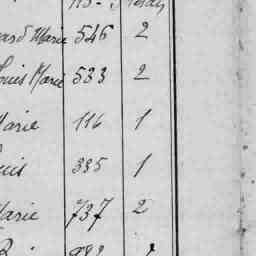 ard Marie 546 2
ouis Marie 533 2
Marie 116 1
uis 335 1
Marie 737 2